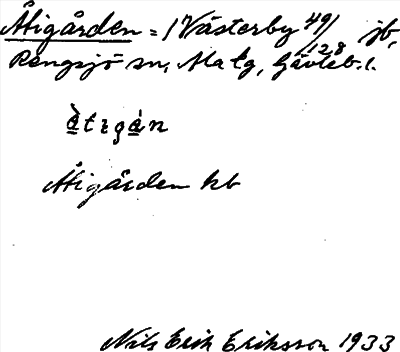 Åtigården = 1 Västerby 4⁹/128 jb,
Rengsjö sn, Matg, Gävleb. l.
àtɩgán
Åtigården kb
Nils Erik Eriksson 1933